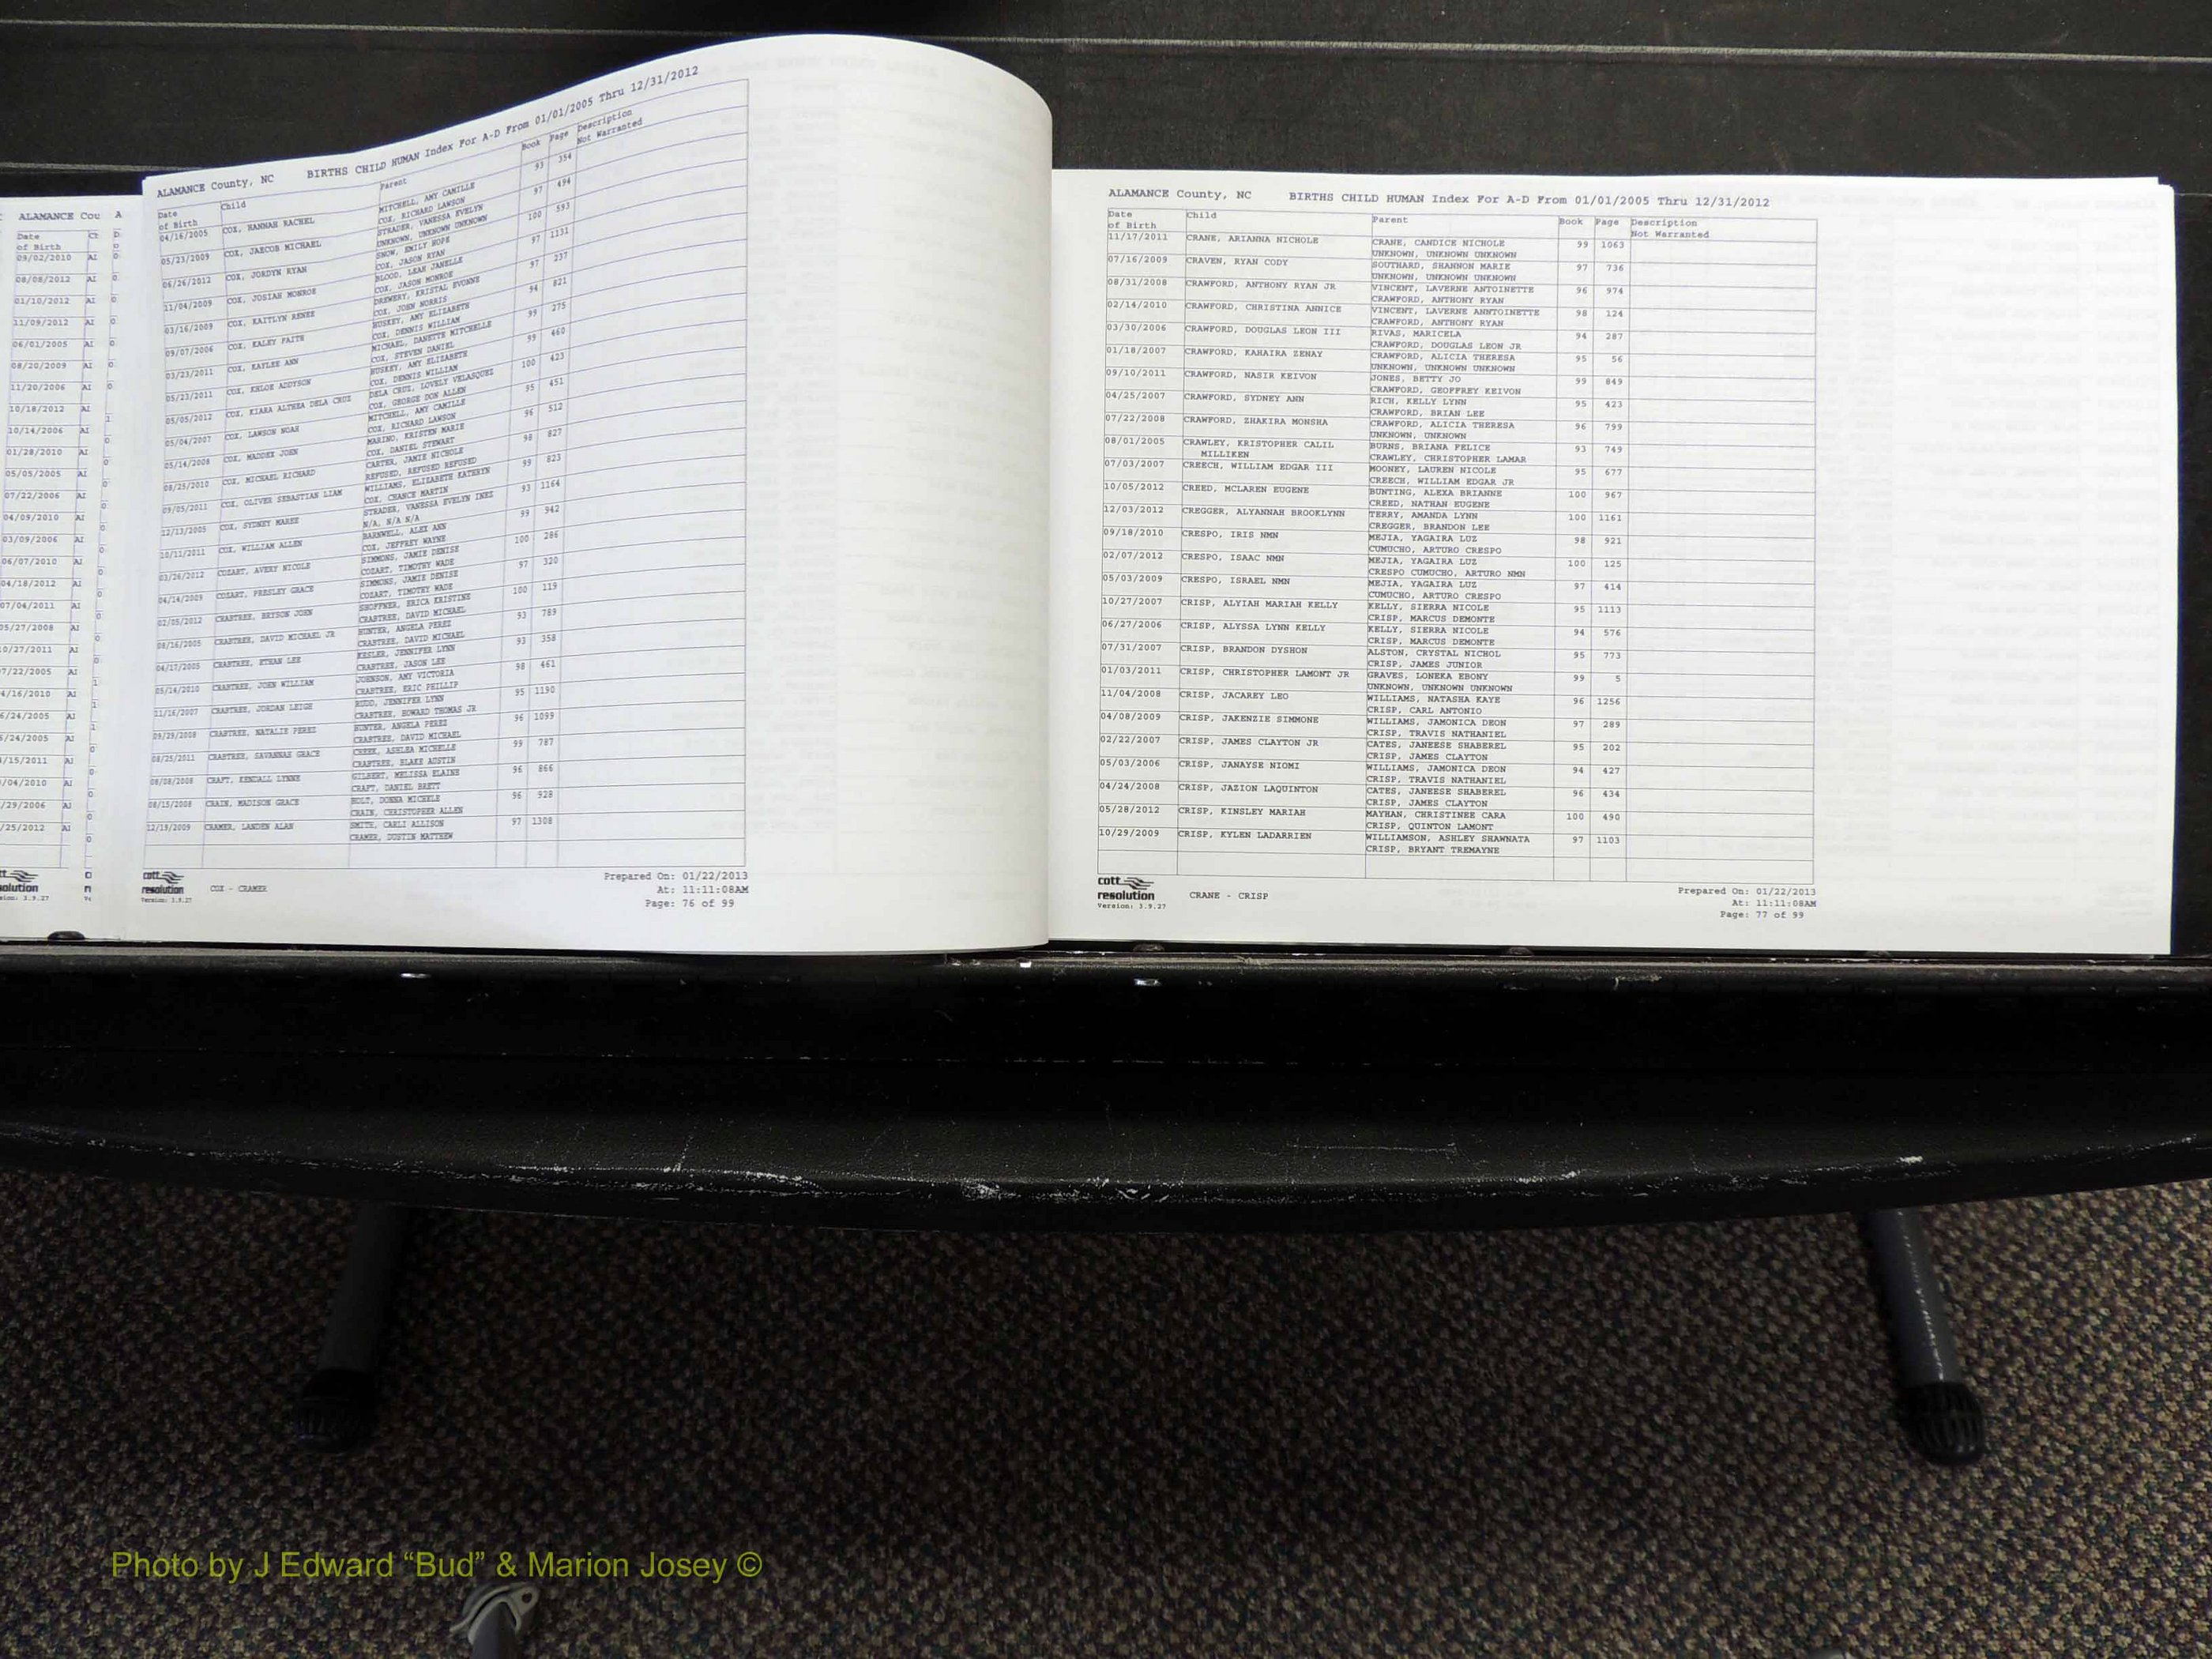 ALAMANCE Cou
Date
of Birth
09/02/2010 AI
08/08/2012 AI
01/10/2012 AI
11/09/2012 AI
06/01/2005 AI
08/20/2009 AI
11/20/2006 AI
10/18/2012 AI
10/14/2006 AI
01/28/2010 AI
05/05/2005 AI
07/22/2006 AI
04/09/2010 AI
03/09/2006 AI
06/07/2010 AI
04/18/2012 AI
07/04/2011 AI
05/27/2008 AI
ALAMANCE County, NC BIRTHS CHILD HUMAN Index For A-D From 01/01/2005 Thru 12/31/2012
Date of Birth Child Parent Book Page Description Not Warranted
04/16/2005 COX, HANNAH RACHEL MITCHELL, AMY CAMILLE 93 354
COX, RICHARD LAWSON
05/23/2009 COX, JAECOB MICHAEL STRADER, VANESSA EVELYN 97 494
UNKNOWN, UNKNOWN UNKNOWN
06/26/2012 COX, JORDYN RYAN SNOW, EMILY HOPE 100 593
COX, JASON RYAN
11/04/2009 COX, JOSIAH MONROE BLOOD, LEAH JANELLE 97 1131
COX, JASON MONROE
03/16/2009 COX, KAITLYN RENEE DREWERY, KRISTAL EVONNE 97 237
COX, JOHN NORRIS
09/07/2006 COX, KALEY FAITH HUSKEY, AMY ELIZABETH 94 821
COX, DENNIS WILLIAM
03/23/2011 COX, KAYLEE ANN MICHAEL, DANETTE MITCHELLE 99 275
COX, STEVEN DANIEL
05/23/2011 COX, KHLOE ADDYSON HUSKEY, AMY ELIZABETH 99 460
COX, DENNIS WILLIAM
05/05/2012 COX, KIARA ALTHEA DELA CRUZ DELA CRUZ, LOVELY VELASQUEZ 100 423
COX, GEORGE DON ALLEN
05/04/2007 COX, LAWSON NOAH MITCHELL, AMY CAMILLE 95 451
COX, RICHARD LAWSON
05/14/2008 COX, MADDEX JOHN MARINO, KRISTEN MARIE 96 512
COX, DANIEL STEWART
08/25/2010 COX, MICHAEL RICHARD CARTER, JAMIE NICHOLE 98 827
REFUSED, REFUSED REFUSED
09/05/2011 COX, OLIVER SEBASTIAN LIAM WILLIAMS, ELIZABETH KATERYN 99 823
COX, CHANCE MARTIN
12/13/2005 COX, SYDNEY MAREE STRADER, VANESSA EVELYN INEZ 93 1164
N/A, N/A N/A
10/11/2011 COX, WILLIAM ALLEN BARNWELL, ALEX ANN 99 942
COX, JEFFREY WAYNE
03/26/2012 COZART, AVERY NICOLE SIMMONS, JAMIE DENISE 100 286
COZART, TIMOTHY WADE
04/14/2009 COZART, PRESLEY GRACE SIMMONS, JAMIE DENISE 97 320
COZART, TIMOTHY WADE
02/05/2012 CRABTREE, BRYSON JOHN SHOFFNER, ERICA KRISTINE 100 119
CRABTREE, DAVID MICHAEL
08/16/2005 CRABTREE, DAVID MICHAEL JR HUNTER, ANGELA PEREZ 93 789
CRABTREE, DAVID MICHAEL
04/17/2005 CRABTREE, ETHAN LEE KESLER, JENNIFER LYNN 93 358
CRABTREE, JASON LEE
05/14/2010 CRABTREE, JOHN WILLIAM JOHNSON, AMY VICTORIA 98 461
CRABTREE, ERIC PHILLIP
11/16/2007 CRABTREE, JORDAN LEIGH RUDD, JENNIFER LYNN 95 1190
CRABTREE, HOWARD THOMAS JR
09/29/2008 CRABTREE, NATALIE PEREZ HUNTER, ANGELA PEREZ 96 1099
CRABTREE, DAVID MICHAEL
08/25/2011 CRABTREE, SAVANNAH GRACE CREEK, ASHLEA MICHELLE 99 787
CRABTREE, BLAKE AUSTIN
08/08/2008 CRAFT, KENDALL LYNNE GILBERT, MELISSA ELAINE 96 866
CRAFT, DANIEL BRETT
08/15/2008 CRAIN, MADISON GRACE HOLT, DONNA MICHELE 96 928
CRAIN, CHRISTOPHER ALLEN
12/19/2009 CRAMER, LANDEN ALAN SMITH, CARLI ALLISON 97 1308
CRAMER, DUSTIN MATTHEW
cott resolution
Version: 3.9.27
COX - CRAMER
Prepared On: 01/22/2013
At: 11:11:08AM
Page: 76 of 99
ALAMANCE County, NC BIRTHS CHILD HUMAN Index For A-D From 01/01/2005 Thru 12/31/2012
Date of Birth Child Parent Book Page Description Not Warranted
11/17/2011 CRANE, ARIANNA NICHOLE CRANE, CANDICE NICHOLE 99 1063
UNKNOWN, UNKNOWN UNKNOWN
07/16/2009 CRAVEN, RYAN CODY SOUTHARD, SHANNON MARIE 97 736
UNKNOWN, UNKNOWN UNKNOWN
08/31/2008 CRAWFORD, ANTHONY RYAN JR VINCENT, LAVERNE ANTOINETTE 96 974
CRAWFORD, ANTHONY RYAN
02/14/2010 CRAWFORD, CHRISTINA ANNICE VINCENT, LAVERNE ANNTOINETTE 98 124
CRAWFORD, ANTHONY RYAN
03/30/2006 CRAWFORD, DOUGLAS LEON III RIVAS, MARICELA 94 287
CRAWFORD, DOUGLAS LEON JR
01/18/2007 CRAWFORD, KAHAIRA ZENAY CRAWFORD, ALICIA THERESA 95 56
UNKNOWN, UNKNOWN UNKNOWN
09/10/2011 CRAWFORD, NASIR KEIVON JONES, BETTY JO 99 849
CRAWFORD, GEOFFREY KEIVON
04/25/2007 CRAWFORD, SYDNEY ANN RICH, KELLY LYNN 95 423
CRAWFORD, BRIAN LEE
07/22/2008 CRAWFORD, ZHAKIRA MONSHA CRAWFORD, ALICIA THERESA 96 799
UNKNOWN, UNKNOWN
08/01/2005 CRAWLEY, KRISTOPHER CALIL BURNS, BRIANA FELICE 93 749
MILLIKEN CRAWLEY, CHRISTOPHER LAMAR
07/03/2007 CREECH, WILLIAM EDGAR III MOONEY, LAUREN NICOLE 95 677
CREECH, WILLIAM EDGAR JR
10/05/2012 CREED, MCLAREN EUGENE BUNTING, ALEXA BRIANNE 100 967
CREED, NATHAN EUGENE
12/03/2012 CREGGER, ALYANNAH BROOKLYNN TERRY, AMANDA LYNN 100 1161
CREGGER, BRANDON LEE
09/18/2010 CRESPO, IRIS NMN MEJIA, YAGAIRA LUZ 98 921
CUMUCHO, ARTURO CRESPO
02/07/2012 CRESPO, ISAAC NMN MEJIA, YAGAIRA LUZ 100 125
CRESPO CUMUCHO, ARTURO NMN
05/03/2009 CRESPO, ISRAEL NMN MEJIA, YAGAIRA LUZ 97 414
CUMUCHO, ARTURO CRESPO
10/27/2007 CRISP, ALYIAH MARIAH KELLY KELLY, SIERRA NICOLE 95 1113
CRISP, MARCUS DEMONTE
06/27/2006 CRISP, ALYSSA LYNN KELLY KELLY, SIERRA NICOLE 94 576
CRISP, MARCUS DEMONTE
07/31/2007 CRISP, BRANDON DYSHON ALSTON, CRYSTAL NICHOL 95 773
CRISP, JAMES JUNIOR
01/03/2011 CRISP, CHRISTOPHER LAMONT JR GRAVES, LONEKA EBONY 99 5
UNKNOWN, UNKNOWN UNKNOWN
11/04/2008 CRISP, JACAREY LEO WILLIAMS, NATASHA KAYE 96 1256
CRISP, CARL ANTONIO
04/08/2009 CRISP, JAKENZIE SIMMONE WILLIAMS, JAMONICA DEON 97 289
CRISP, TRAVIS NATHANIEL
02/22/2007 CRISP, JAMES CLAYTON JR CATES, JANEESE SHABEREL 95 202
CRISP, JAMES CLAYTON
05/03/2006 CRISP, JANAYSE NIOMI WILLIAMS, JAMONICA DEON 94 427
CRISP, TRAVIS NATHANIEL
04/24/2008 CRISP, JAZION LAQUINTON CATES, JANEESE SHABEREL 96 434
CRISP, JAMES CLAYTON
05/28/2012 CRISP, KINSLEY MARIAH MAYHAN, CHRISTINEE CARA 100 490
CRISP, QUINTON LAMONT
10/29/2009 CRISP, KYLEN LADARRIEN WILLIAMSON, ASHLEY SHAWNATA 97 1103
CRISP, BRYANT TREMAYNE
cott resolution
Version: 3.9.27
CRANE - CRISP
Prepared On: 01/22/2013
At: 11:11:08AM
Page: 77 of 99
Photo by J Edward “Bud” & Marion Josey ©